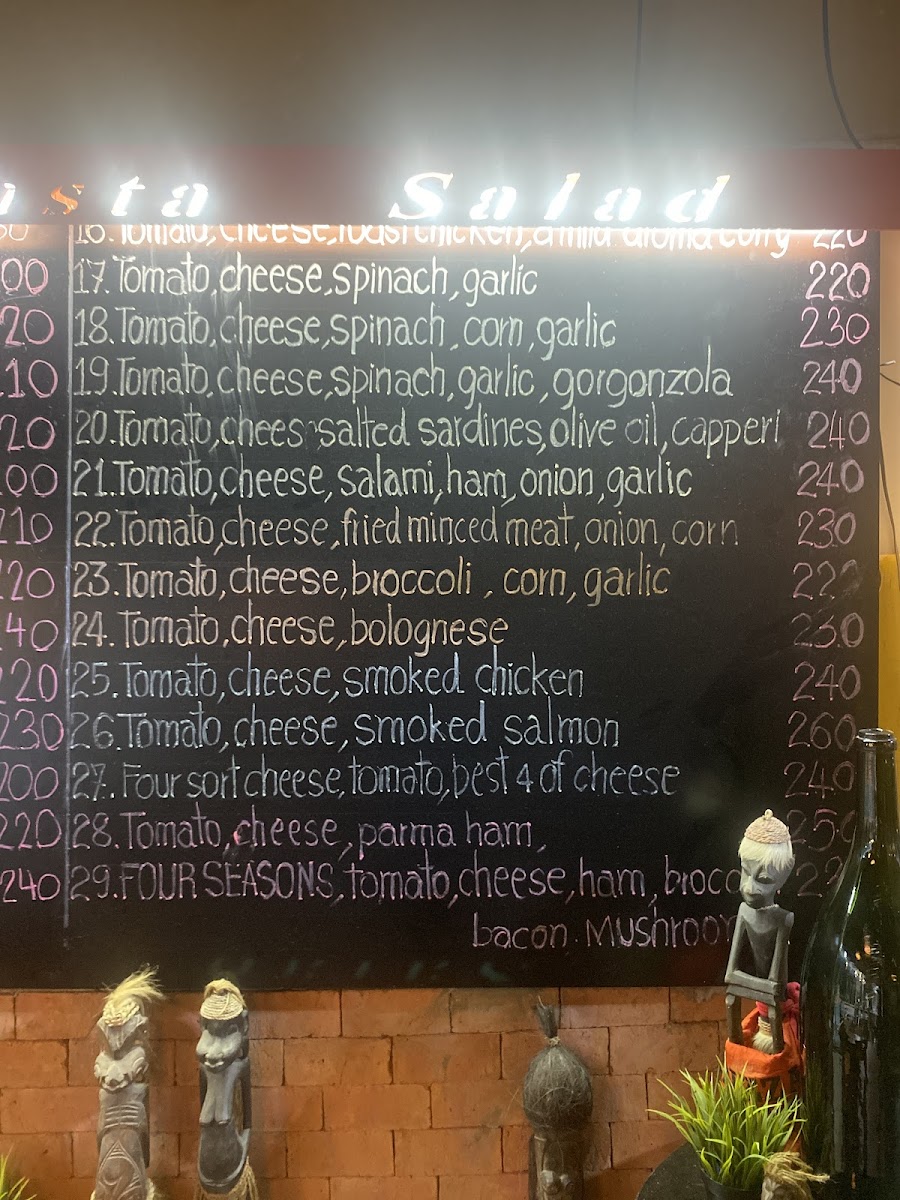 ista Salad
16. Tomato, cheese, roast chicken, a mild aroma curry 220
00 17. Tomato, cheese, spinach, garlic 220
20 18. Tomato, cheese, spinach, corn, garlic 230
10 19. Tomato, cheese, spinach, garlic, gorgonzola 240
20 20. Tomato, chees salted sardines, olive oil, capperi 240
00 21. Tomato, cheese, salami, ham, onion, garlic 240
210 22. Tomato, cheese, fried minced meat, onion, corn 230
220 23. Tomato, cheese, broccoli, corn, garlic 22
40 24. Tomato, cheese, bolognese 230
220 25. Tomato, cheese, smoked chicken 240
230 26. Tomato, cheese, smoked salmon 260
200 27. Four sort cheese, tomato, best 4 of cheese 240
220 28. Tomato, cheese, parma ham, 250
240 29. FOUR SEASONS, tomato, cheese, ham, broco 22
bacon. MUshroom